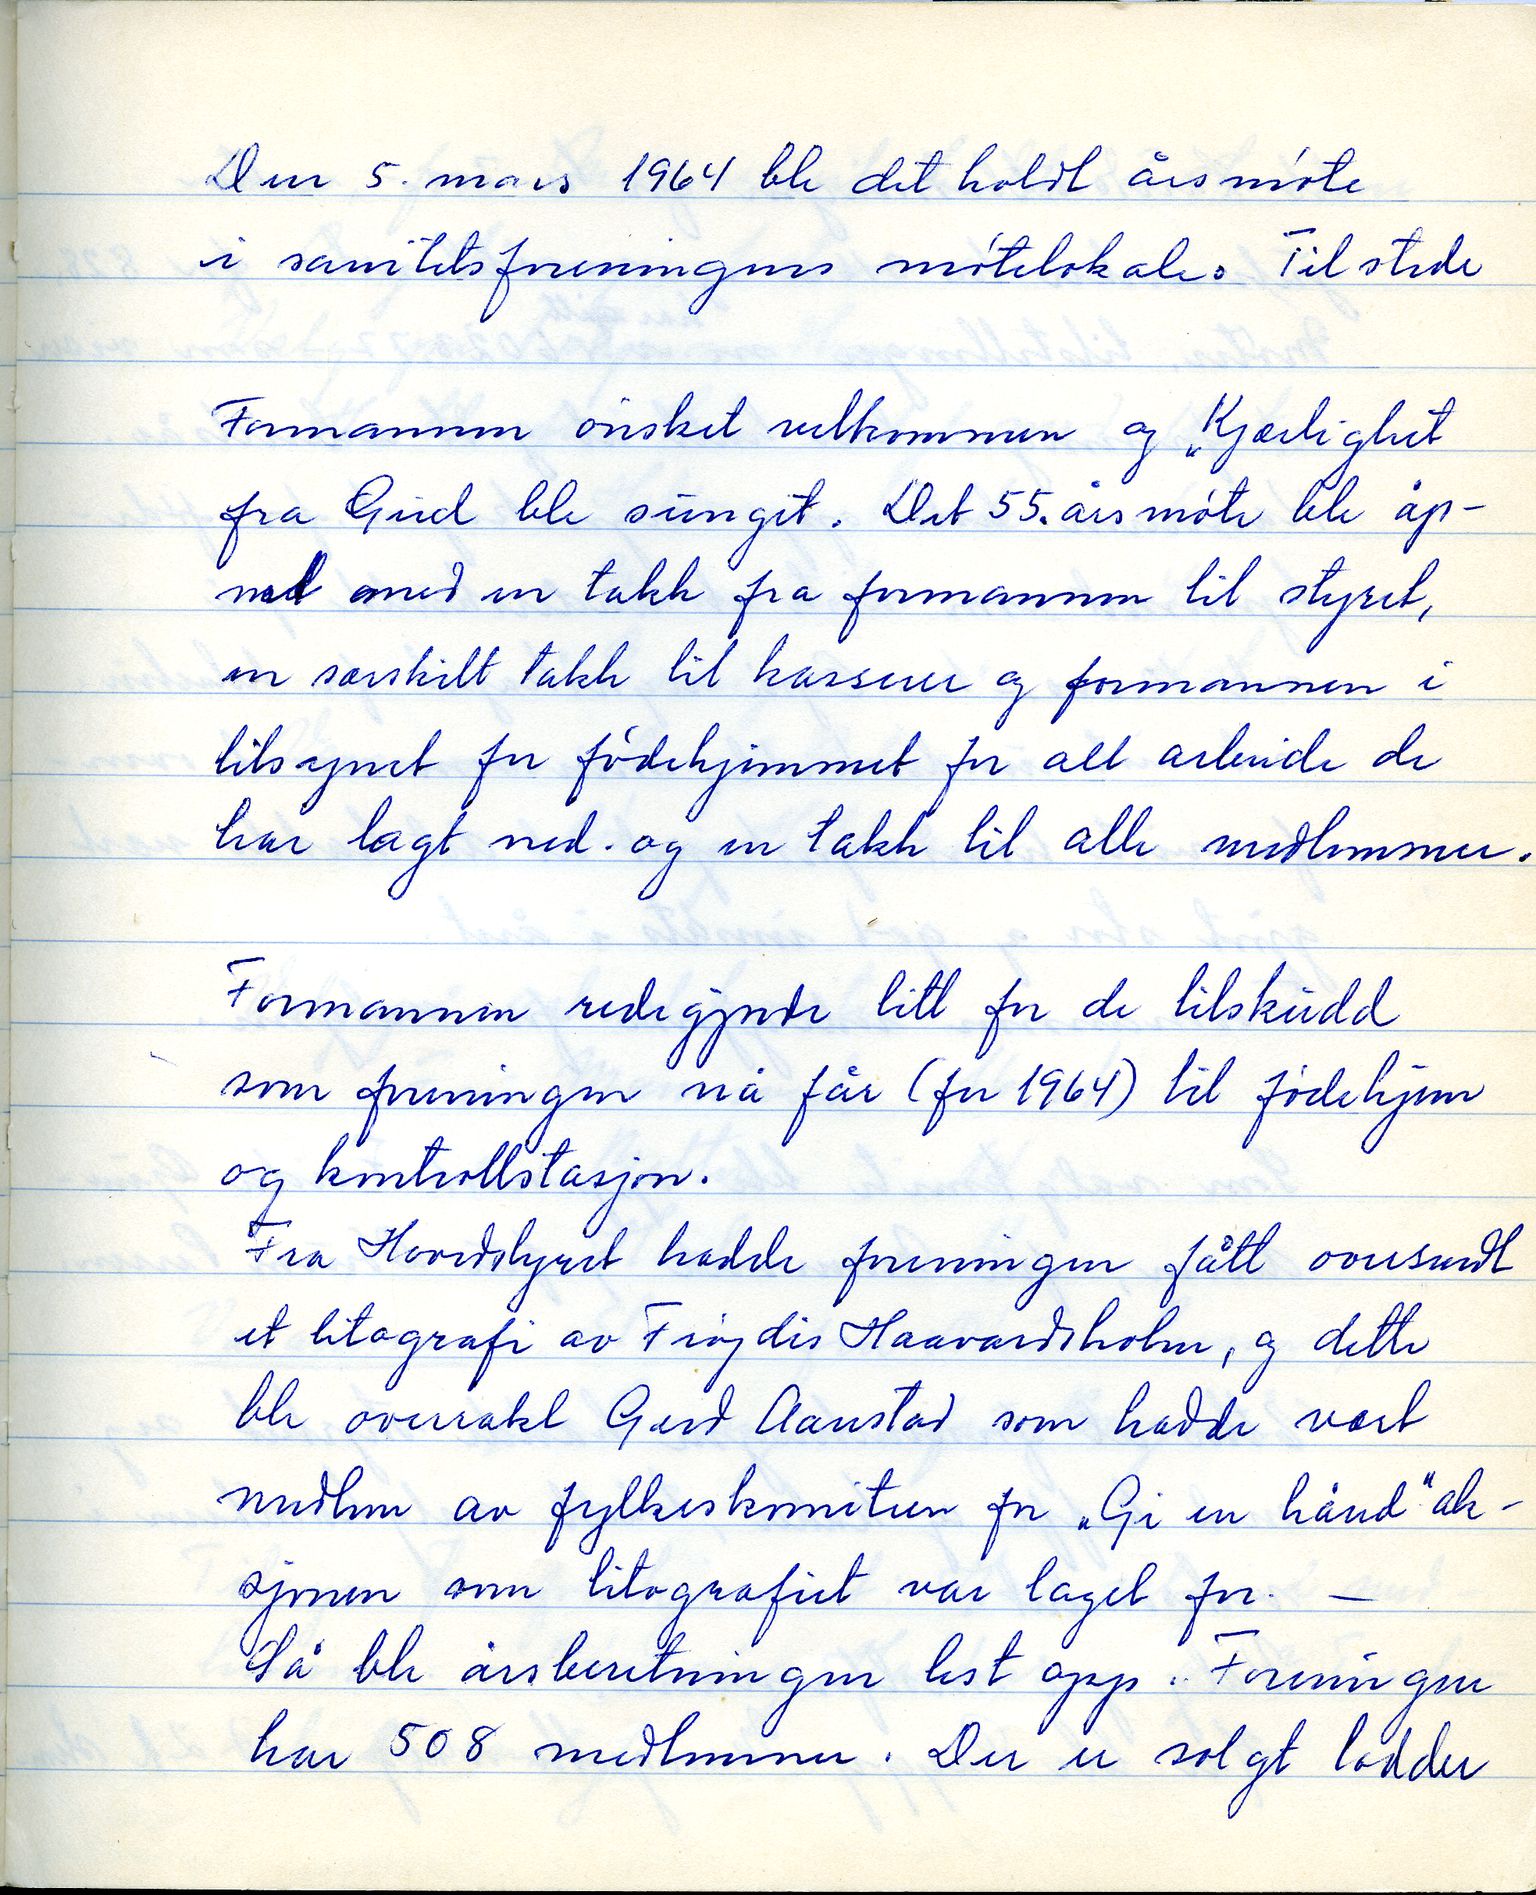 Den 5. mars 1964 ble det holdt årsmøte
i sanitetsforeningens møtelokale. Til stede
Formannen ønsket velkommen og „Kjærlighet
fra Gud ble sunget. Det 55. årsmøte ble åp-
net med en takk fra formannen til styret,
en særskilt takk til kasserer og formannen i
tilsynet for fødehjemmet for alt arbeide de
har lagt ned. og en takk til alle medlemmer.
Formannen redegjorde litt for de tilskudd
som foreningen nå får (for 1964) til fødehjem
og kontrollstasjon.
Fra Hovedstyret hadde foreningen fått oversendt
et litografi av Frøydis Haavardsholm, og dette
ble overrakt Gerd Aanstad som hadde vært
medlem av fylkeskomiteen for „Gi en hånd" ak-
sjonen som litografiet var laget for. —
Så ble årsberetningen lest opp. Foreningen
har 508 medlemmer. Der er solgt lodder